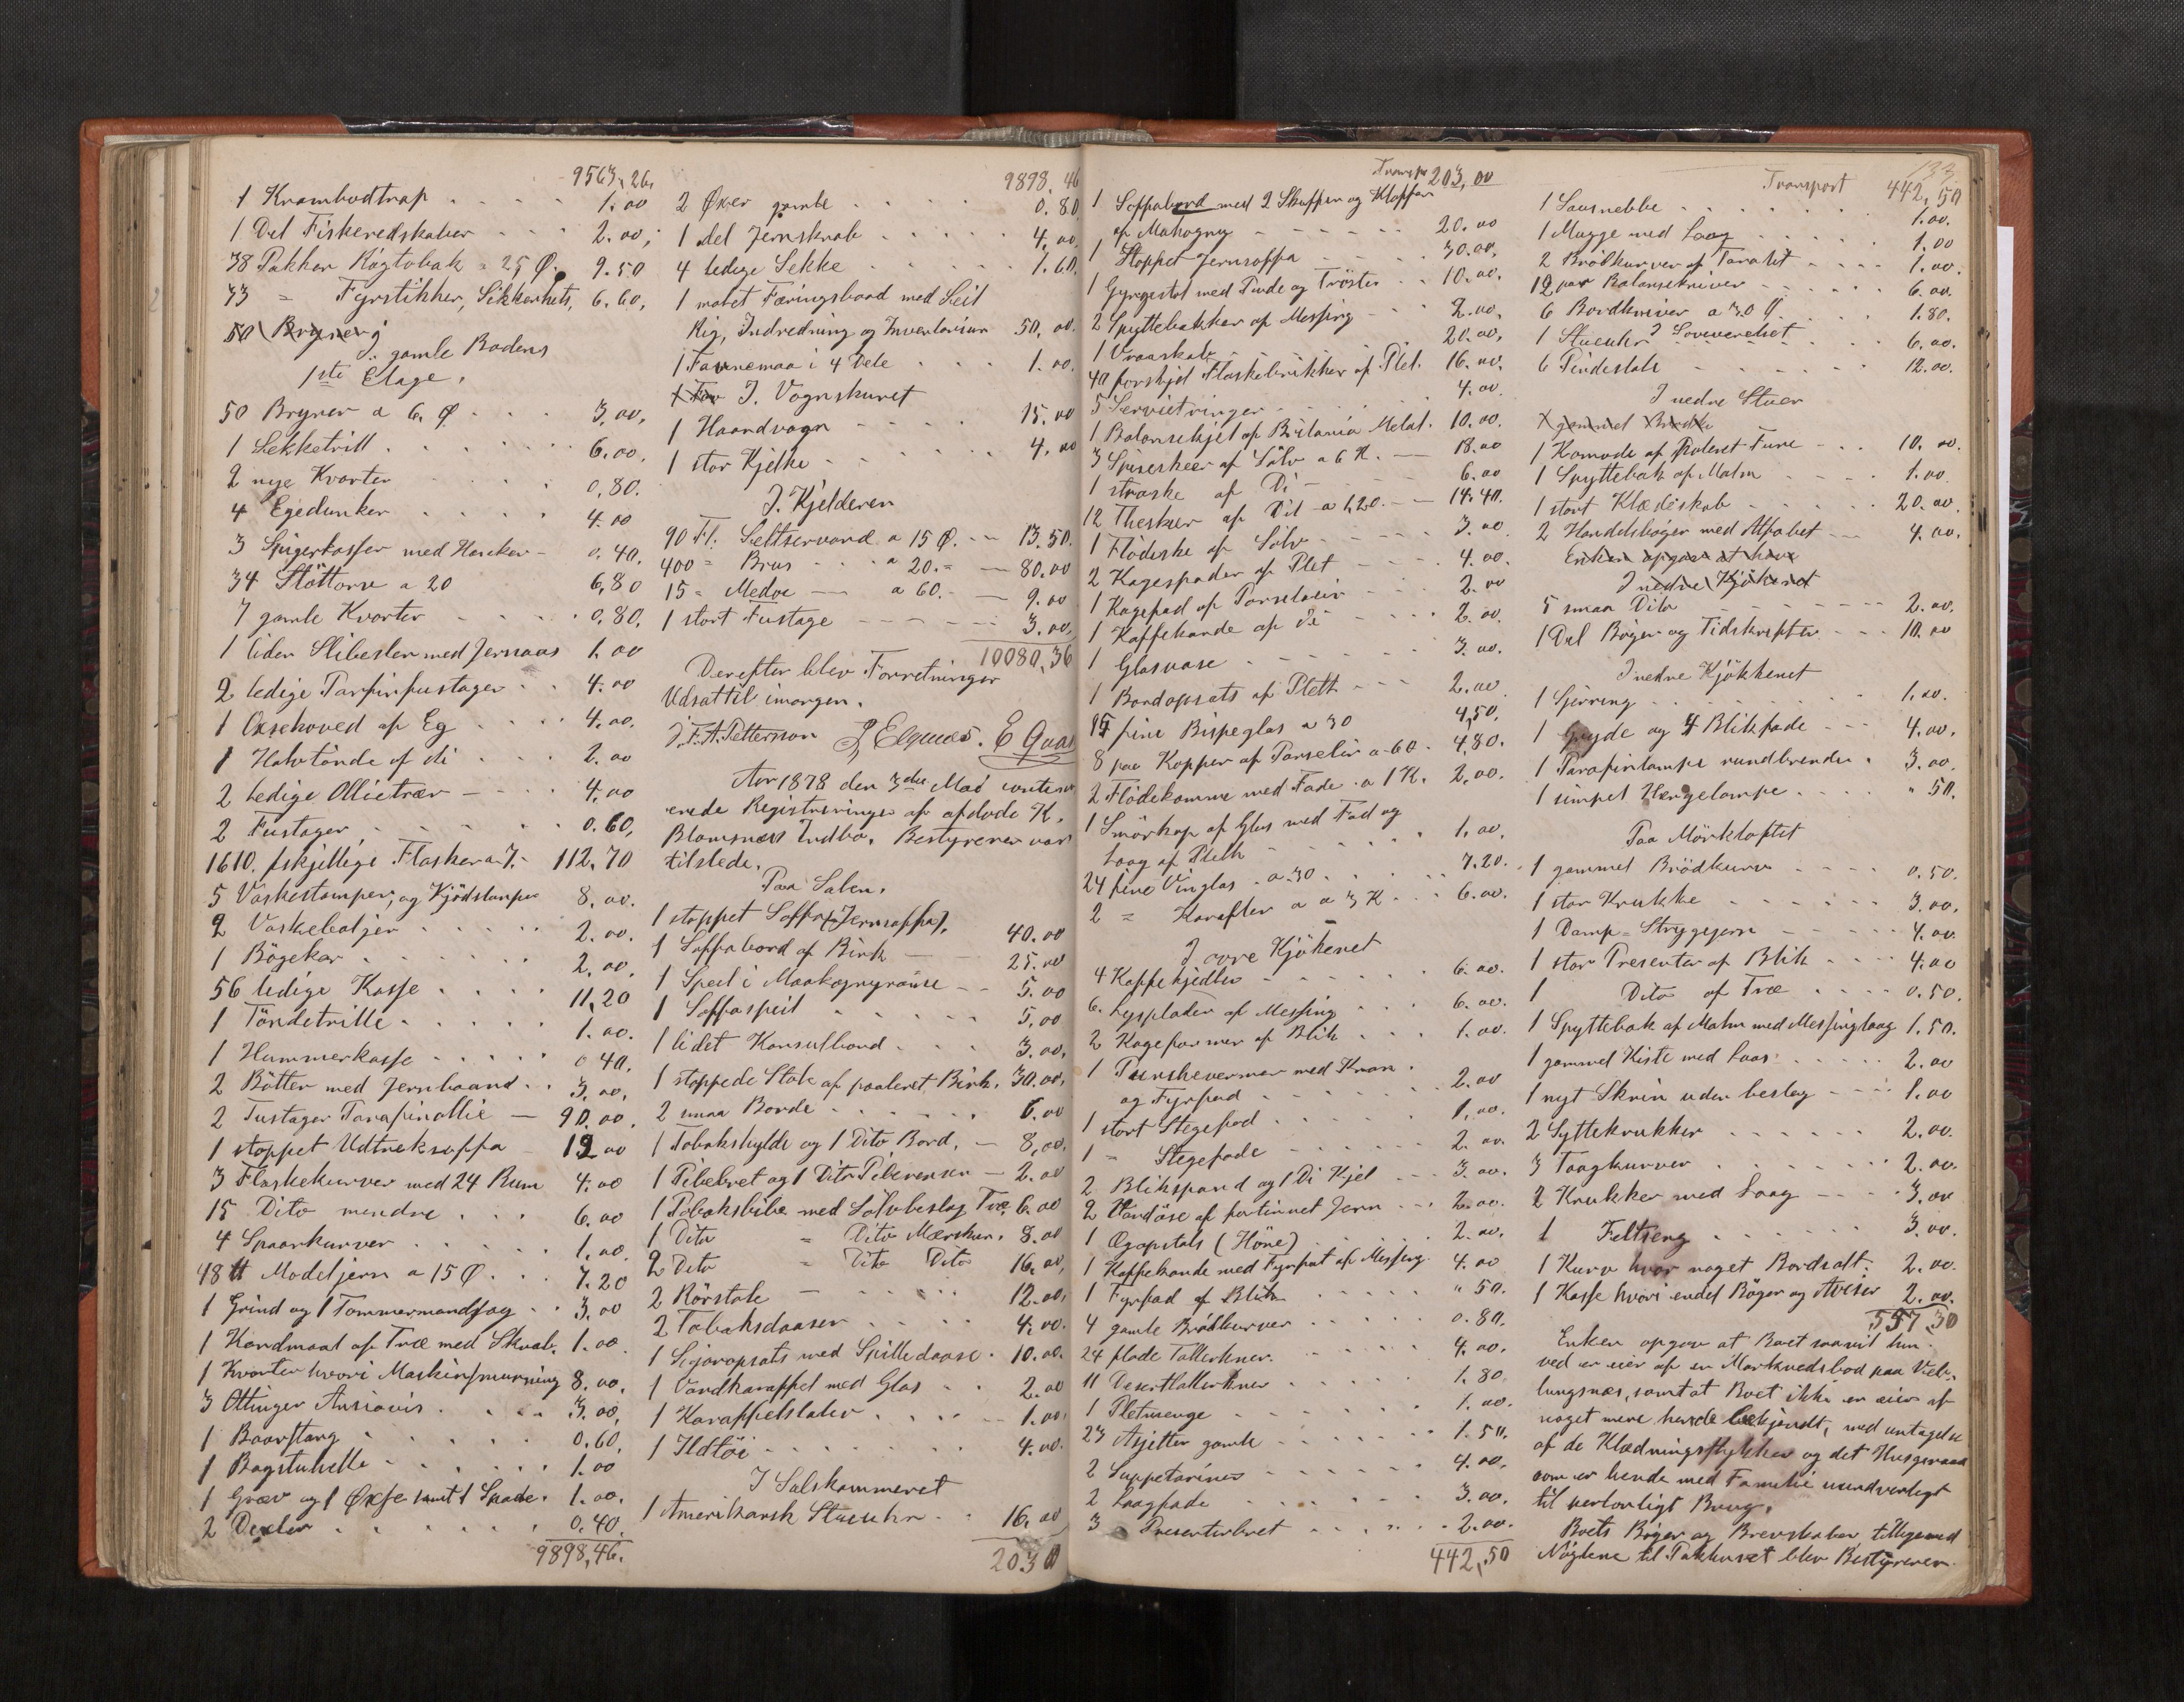 9563,26.
1 Krambodtrap . . . . 1.00
1 Del Fiskeredskaber - - 2.00,
38 Pakker Røgtobak a 25 Ø. 9.50
33 = Fyrstikker, Sikkerhets, 6.60,
50 Bryner
i gamle Bodens
1ste Etage.
50 Bryner a 6. Ø . . . 3,00,
1 Sekketrill . . . . 6.00.
2 nye Kvarter . . . 0,80.
4 Egedunker . . . . 4.00
3 Spigerkasser med Hancker - 0.40.
34 Støttorve a 20 6,80
7 gamle Kvarter - - . 0,80.
1 liden Slibesten med Jernaas 1.00
2 ledige Parfinfustager . . 4.00
1 Oxehoved af Eg . . . 4.00.
1 Halvtønde af di . . . 2.00
2 ledige Ollietrær - - . 4.00
2 Fustager . . . . 0.60,
1610. fskjellige Flasker a 7.- 112,70
5 Vaskestamper, og Kjødstamper 8,00.
2 Vaskebaljer . . . . 2.00.
1 Bøgekar . . . . 2,00.
56 ledige Kasse . . . . 11,20
1 Tøndetrille . . . . 1.00.
1 Hummerkasse . . . . 0 40.
2 Bøtter med Jernbaand . . 3,00,
2 Fustager Parafinollie — 90.00.
1 stoppet Udtreksoffa - 12 00
3 Flaskekurver med 24 Rum 4.00
15 Dito mindre . . . 6.00
4 Spaankurver . . . . 1.00.
48 ℔ Modeljern a 15 Ø . . . 7.20
1 Grind og 1 Tømmermandsag . . 3,00
1 Kandmaal af Træ med Skrab. 1.00
1 Kvarter hvori Maskinsmurning 8.00.
3 Ottinger Ansiovis . . . . 3.00,
1 Baarstang . . . . 0.60.
1 Bagstuhelle . . . . 1.00
1 Græv og 1 Økse samt 1 Spade. 1.00.
2 Dexler . . . . 0.40.
9898,46.
9898,46
2 Øxer gamle . . . . 0.80
1 del Jernskrab . . . . 4,00,
4 ledige Sekke . . . . 1.60.
1 malet Færingsbaad med Seil
Rig, Indredning og Inventarium 50,00.
1 Favnemaa i 4 Dele . . . 1.00.
I. Vognskuret
1 Haandvogn - - - - 15.00
1 stor Kjelke - - - - 4,00
I. Kjelderen
90 Fl. Seltservand a 15 Ø. - - 13.50.
400 = Brus - - - a 20.= — 80.00
15 = Medoe — a 60.- — 9.00
1 stort Fustage - - - - 3.00,
10080,36
Derefter blev Forretninger
Udsat til imorgen.
J. F. A. Pettersson
Aar 1878 den 3die Mai contenu
erede Registreringen af afdøde K.
Blomsnæs Indbo. Bestyreren var
tilstede.
Paa Salen.
1 stoppet Soffa (Jernsoffa), 40.00
1 Soffabord af Birk — 25.00
1 Speil i Maakognyrame - - 5.00
1 Soffaspeil . . . . 5,00
1 lidet Konsulbord . . . 3.00,
1 stoppede Stole af poleret Birk. 30.00,
2 smaa Borde . . . . 6.00
1 Tobakshylde og 1 Dito Bord, — 8,00,
1 Pibebret og 1 Dito Piberenser — 2.00
1 Tobakspibe med Sølvbeslag Træ 6.00
1 Dito = Dito Merskum. 8.00
2 Dito = Dito Dito 16.00,
2 Rørstole - - - - 12.00,
2 Tobaksdaaser . . . . 4.00.
1 Sigaropsats med Spilledaase . 10.00.
1 Vandkaraffel med Glas . . 2.00
1 Karaffelstaler . . . . 1.00,
1 Ildtøi - - - . . . 4.00.
I Salskammeret
1 Amerikansk Stueuhr . . 16.00
203 00
Transp. 203,00
1 Soffabord med 2 Skuffer og Klaffer
af Mahogny - - - - 20.00
1 Stoppet Jernsoffa - - - 30.00,
1 Gyngestol med Pude og Trøster . . 10.00.
2 Spyttebakker af Messing - - - 2.00,
1 Vraaskab - - - - 20.00,
40 forskjel. Flaskebrikker af Plet. 16.00.
5 Servietringer - - - 4.00.
1 Balansekjel af Britania Metal. 10.00.
3 Spiseskeer af Sølv a 6 K. — 18.00
1 straske af Di - - 6.00
12 Theskeer af Dit a 1,20. — 14.40.
1 Flødeske af Sølv - - - - 3.00
2 Kagespader af Plet - - - 4.00.
1 Kagefad af Porselain - - - 2.00
1 Kaffekande af di - - - 2.00.
1 Glasvase - - - - 3.00.
1 Bordopsats af Pleth - - - 2.00
15 fine Bispeglas a 30 4,50.
8 par Kopper af Porselin a 60. 4,80.
2 Flødekomme med Fade a 1 K. 2,00.
1 Smørkop af Glas med Fad og
Laag af Pleth . . . . 1.00.
24 fine Vinglas . a 30 . . . 7.20.
2 = Karafler a a 3 K . . 6.00.
I øvre Kjøkenet
4 Kaffekjedler - - - - 6.00.
6. Lysplader af Messing . . 6.00.
2 Kageformer af Blik . . . 1.00.
1 Punshevarmer med Kran .
og Fyrfad - - - - 2.00
1 stort Stegefad . . . . 1.00.
1 = Stegefade - - - 2.00.
2 Blikspand og 1 Di Kjel - - 3.00.
2 Vandøse af fortinnet Jern - - 2.00.
1 Øgapstals (Høne) . . . 2.00.
1 Kaffekande med Fyrfat af Messing. 4.00
1 Fyrfad af Blik . . . . " 50.
4 gamle Brødkurver . . . . 0.80.
24 flade Tallerkner. . . . 4.00.
11 Desertallerkner . . . . 1.80.
1 Pletmenge - - - 1.00.
23 Asjetter gamle - - - 1.50.
2 Suppetariner - - - - 4.00.
2 Laagfade . . . . 3.00.
3 Presenterbret . . . . 2.00.
442,50
133
Transport 442,50
1 Sausnebbe . . . . 1.00.
1 Mugge med Laag . . . . 1.00
2 Brødkurver af Taralit - - - - 1.00.
12 par Balansekniver - - - 6.00.
6 Bordkniver a 30 Ø . . . 1.80.
1 Stueuhr I Soveværelset . . . 6.00.
6 Pindestole - - - - 12.00.
I nedre Stuer
1 gammel Brødke
1 Komode af Poleret Fure - - - 10.00.
1 Spyttebak af Malm - - - 1.00
1 stort Klædeskab - - - - 20.00,
2 Handelsbøger med Alfabet — - 4.00.
Enken opgav at have
I nedre Kjøkenet
5 smaa Dito - - - - 2.00.
1 Del Bøger og Tidskrifter - - - 10.00
I nedre Kjøkkenet
1 Spirring - - . . . 1.00.
1 Gryde og 4 Blikfade - - - 4.00.
1 Parafinlampe rundbrender . 3.00.
1 simpel Hengelampe . . . " 50.
Paa Mørkloftet
1 gammel Brødkurv - - - - 0.50.
1 stor Krukke . . . . 3.00.
1 Damp=Strygejern - - - - 4.00.
1 stor Presenter af Blik . . . 4.00
1 Dito af Træ . . . . 0.50.
1 Spyttebak af Malm med Messinglaag 1.50.
1 gammel Kiste med Laas . . . 2.00
1 nyt Skrin uden beslag - - - 1.00
2 Syltekrukker . . . . 2.00.
3 Taagkurver . . . . 2.00.
2 Krukker med Laag — - - 3.00
1 Feltseng . . . . 3.00.
1 Kurv hvor noget Bordsalt. 2.00.
1 Kasse hvori endel Bøger og Aviser 2.00.
557,30
Enken opgav at Boet saavit hun
ved er eier af en Markvedsbod paa Veb-
lungsnæs, samt at Boet ikke er eier af
noget mere hende bekjendt, med untagelse
af de Klædningsstykker og det Husgeraad
som er hende med Familie uundverligt
til perlonligt Brug.
Boets Bøger og Brevskaber tilligemed
Nøglene til Pakhuset blev Bestyreren